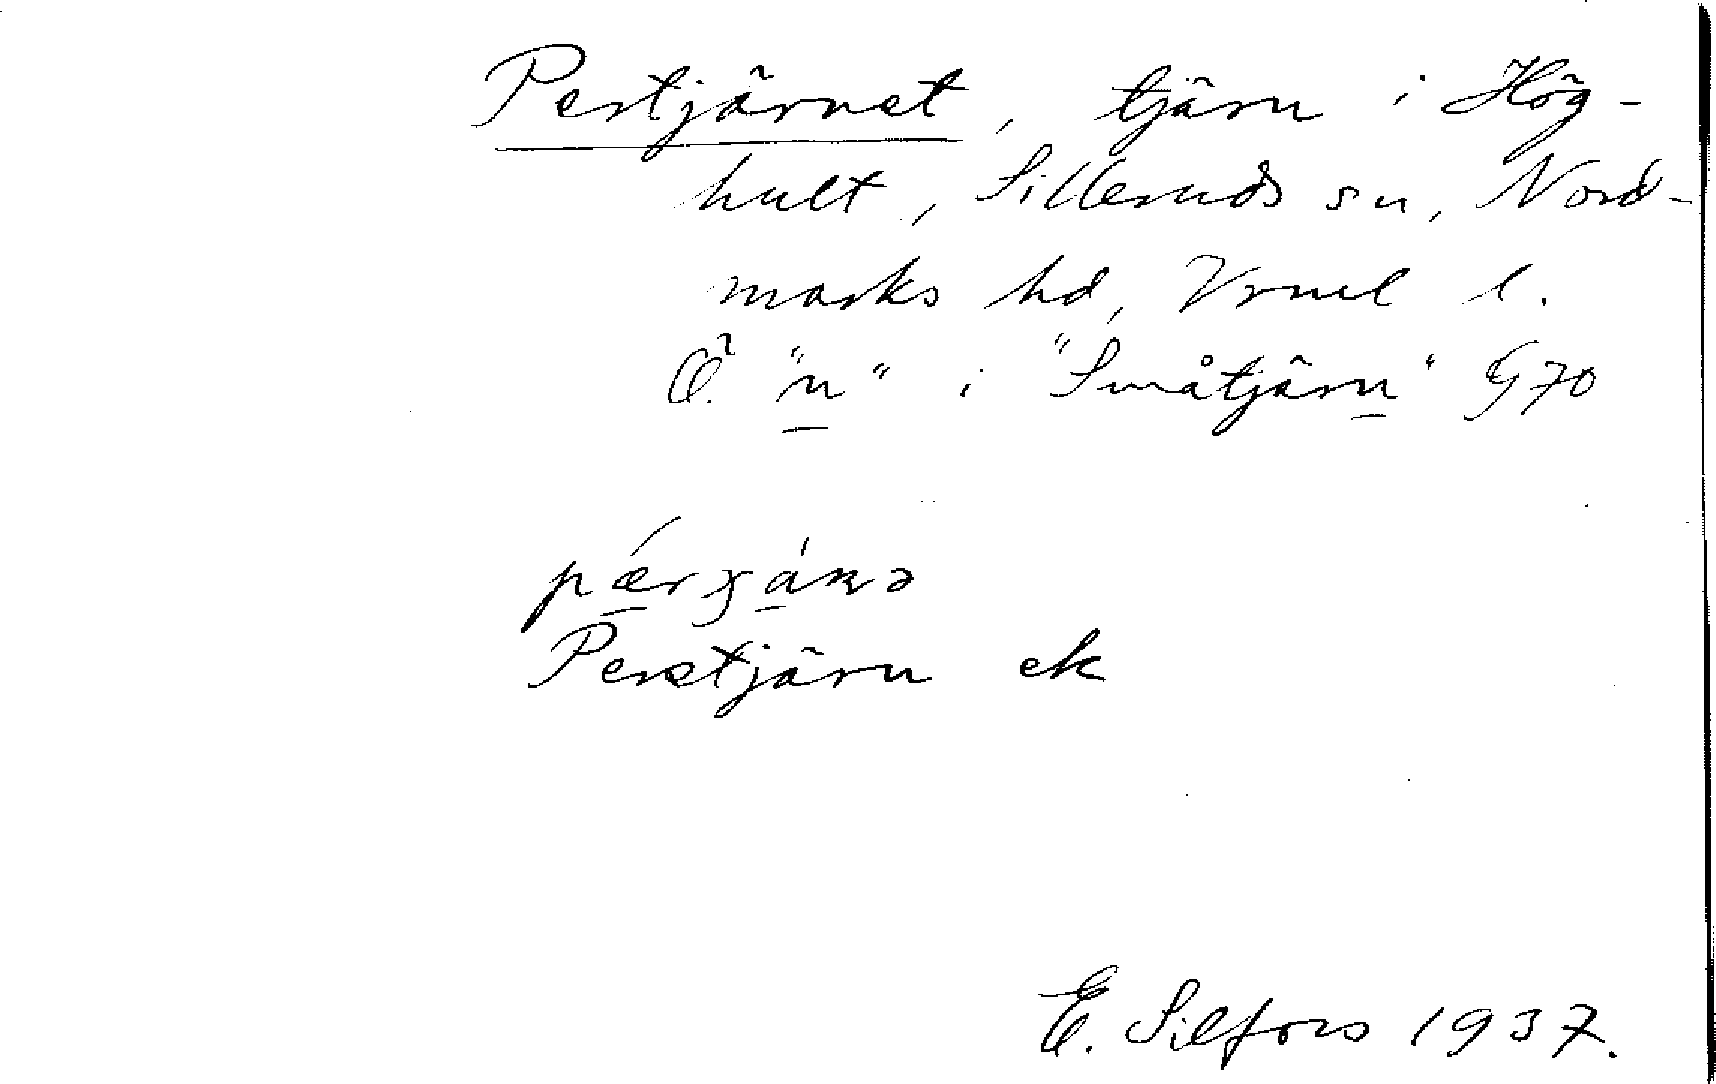 Perstjärnet, tjärn i Hög-
hult, Silleruds sn, Nord-
marks hd, Vrml l.
Ö. "n" i "Småtjärn" G70
Perstjärn ek
E. Silfors 1937.